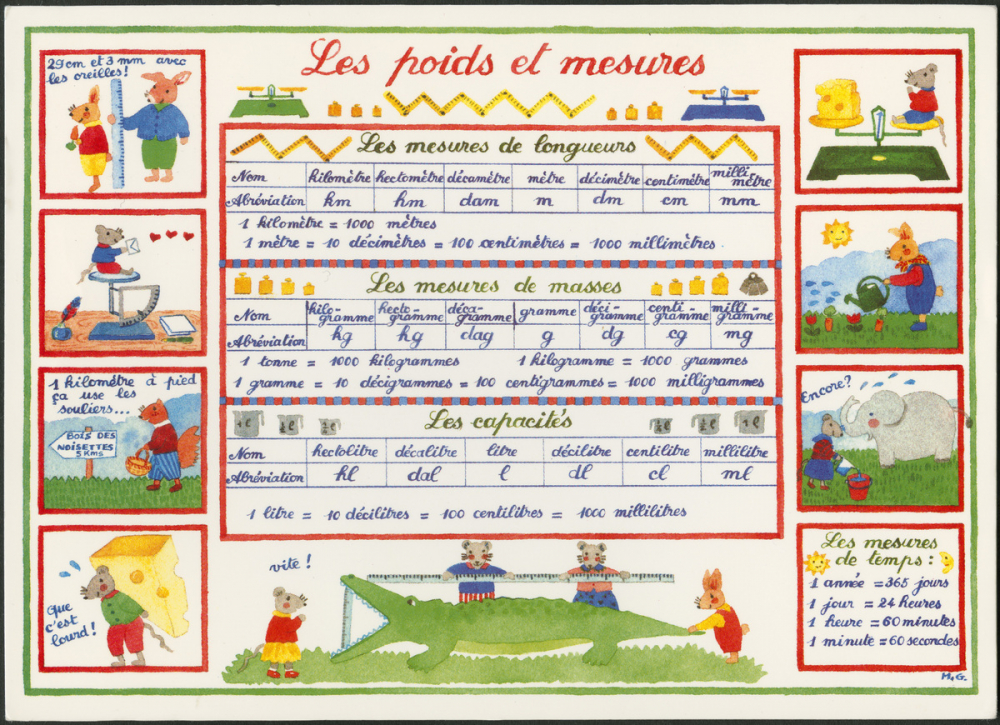 Les poids et mesures
29cm et 3 mm avec
les oreilles!
1 kilomètre à pied
ça use les
souliers...
BOIS DES
NOISETTES
5 KMS
Que
c'est
lourd!
Les mesures de longueurs
Nom kilomètre hectomètre décamètre mètre décimètre centimètre millimètre
Abréviation km hm dam m dm cm mm
1 kilomètre = 1000 mètres
1 mètre = 10 décimètres = 100 centimètres = 1000 millimètres.
Les mesures de masses
Nom kilo-gramme hecto-gramme déca-gramme gramme déci-gramme centi-gramme milli-gramme
Abréviation kg hg dag g dg cg mg
1 tonne = 1000 kilogrammes 1 kilogramme = 1000 grammes
1 gramme = 10 décigrammes = 100 centigrammes = 1000 milligrammes
Les capacités
Nom hectolitre décalitre litre décilitre centilitre millilitre
Abréviation hl dal l dl cl ml
1 litre = 10 décilitres = 100 centilitres = 1000 millilitres
vite!
Encore?
Les mesures
de temps:
1 année = 365 jours
1 jour = 24 heures
1 heure = 60 minutes
1 minute = 60 secondes